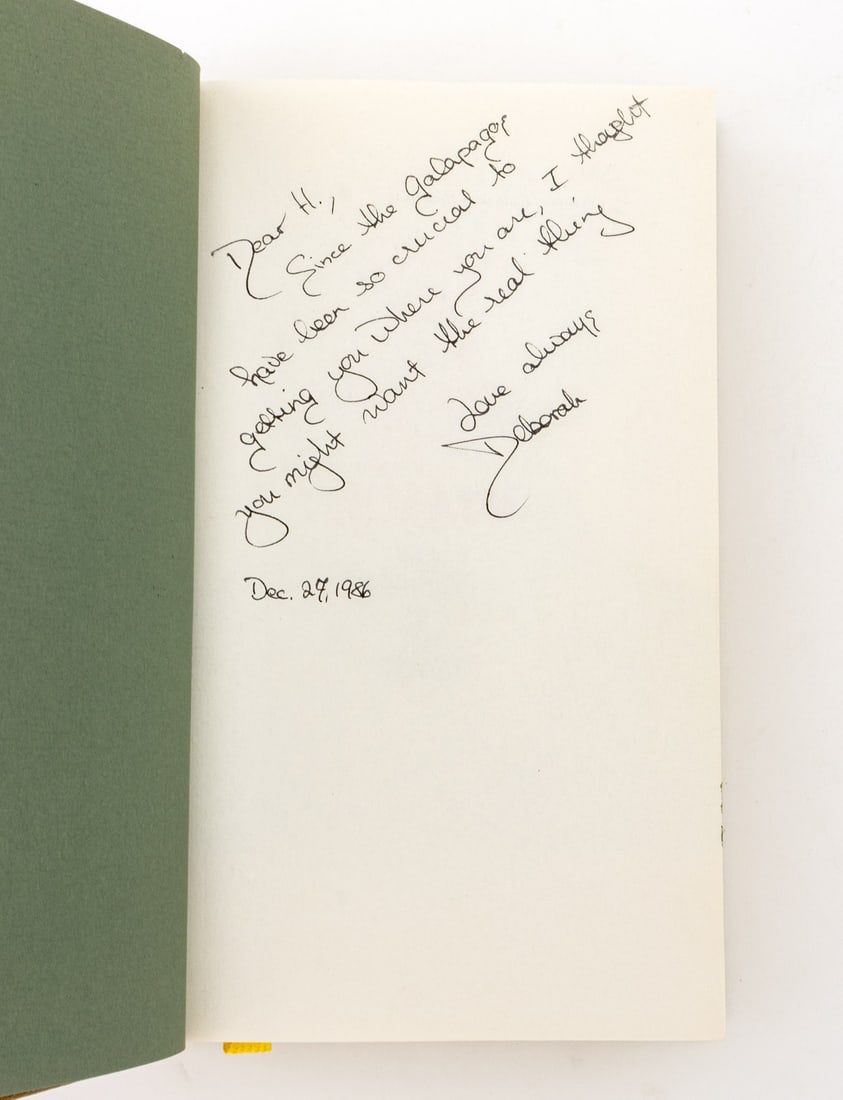 Dear H.,
Since the Galapagos
have been so crucial to
getting you where you are, I thought
you might want the real thing
Love always
Deborah
Dec. 27, 1986